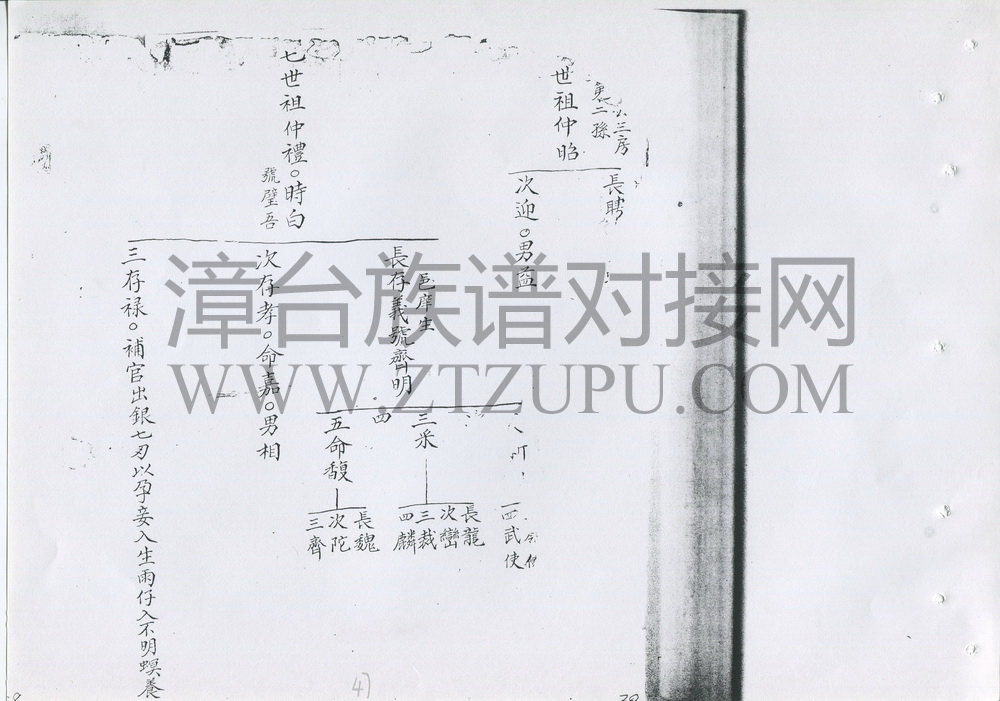 三房
裏二孫
世祖仲昭
長聘
次迎。男益
七世祖仲禮。時白
號壁吾
長存義號齊明
邑庠生
次存孝。命嘉。男相
三存禄。補官出銀七刃以孕妾入生雨仔入不明螟養
三采
四
五命馥
四武使
長龍
次巒
三裁
四麟
長魏
次陀
三齊
漳台族谱对接网
WWW.ZTZUPU.COM
4)